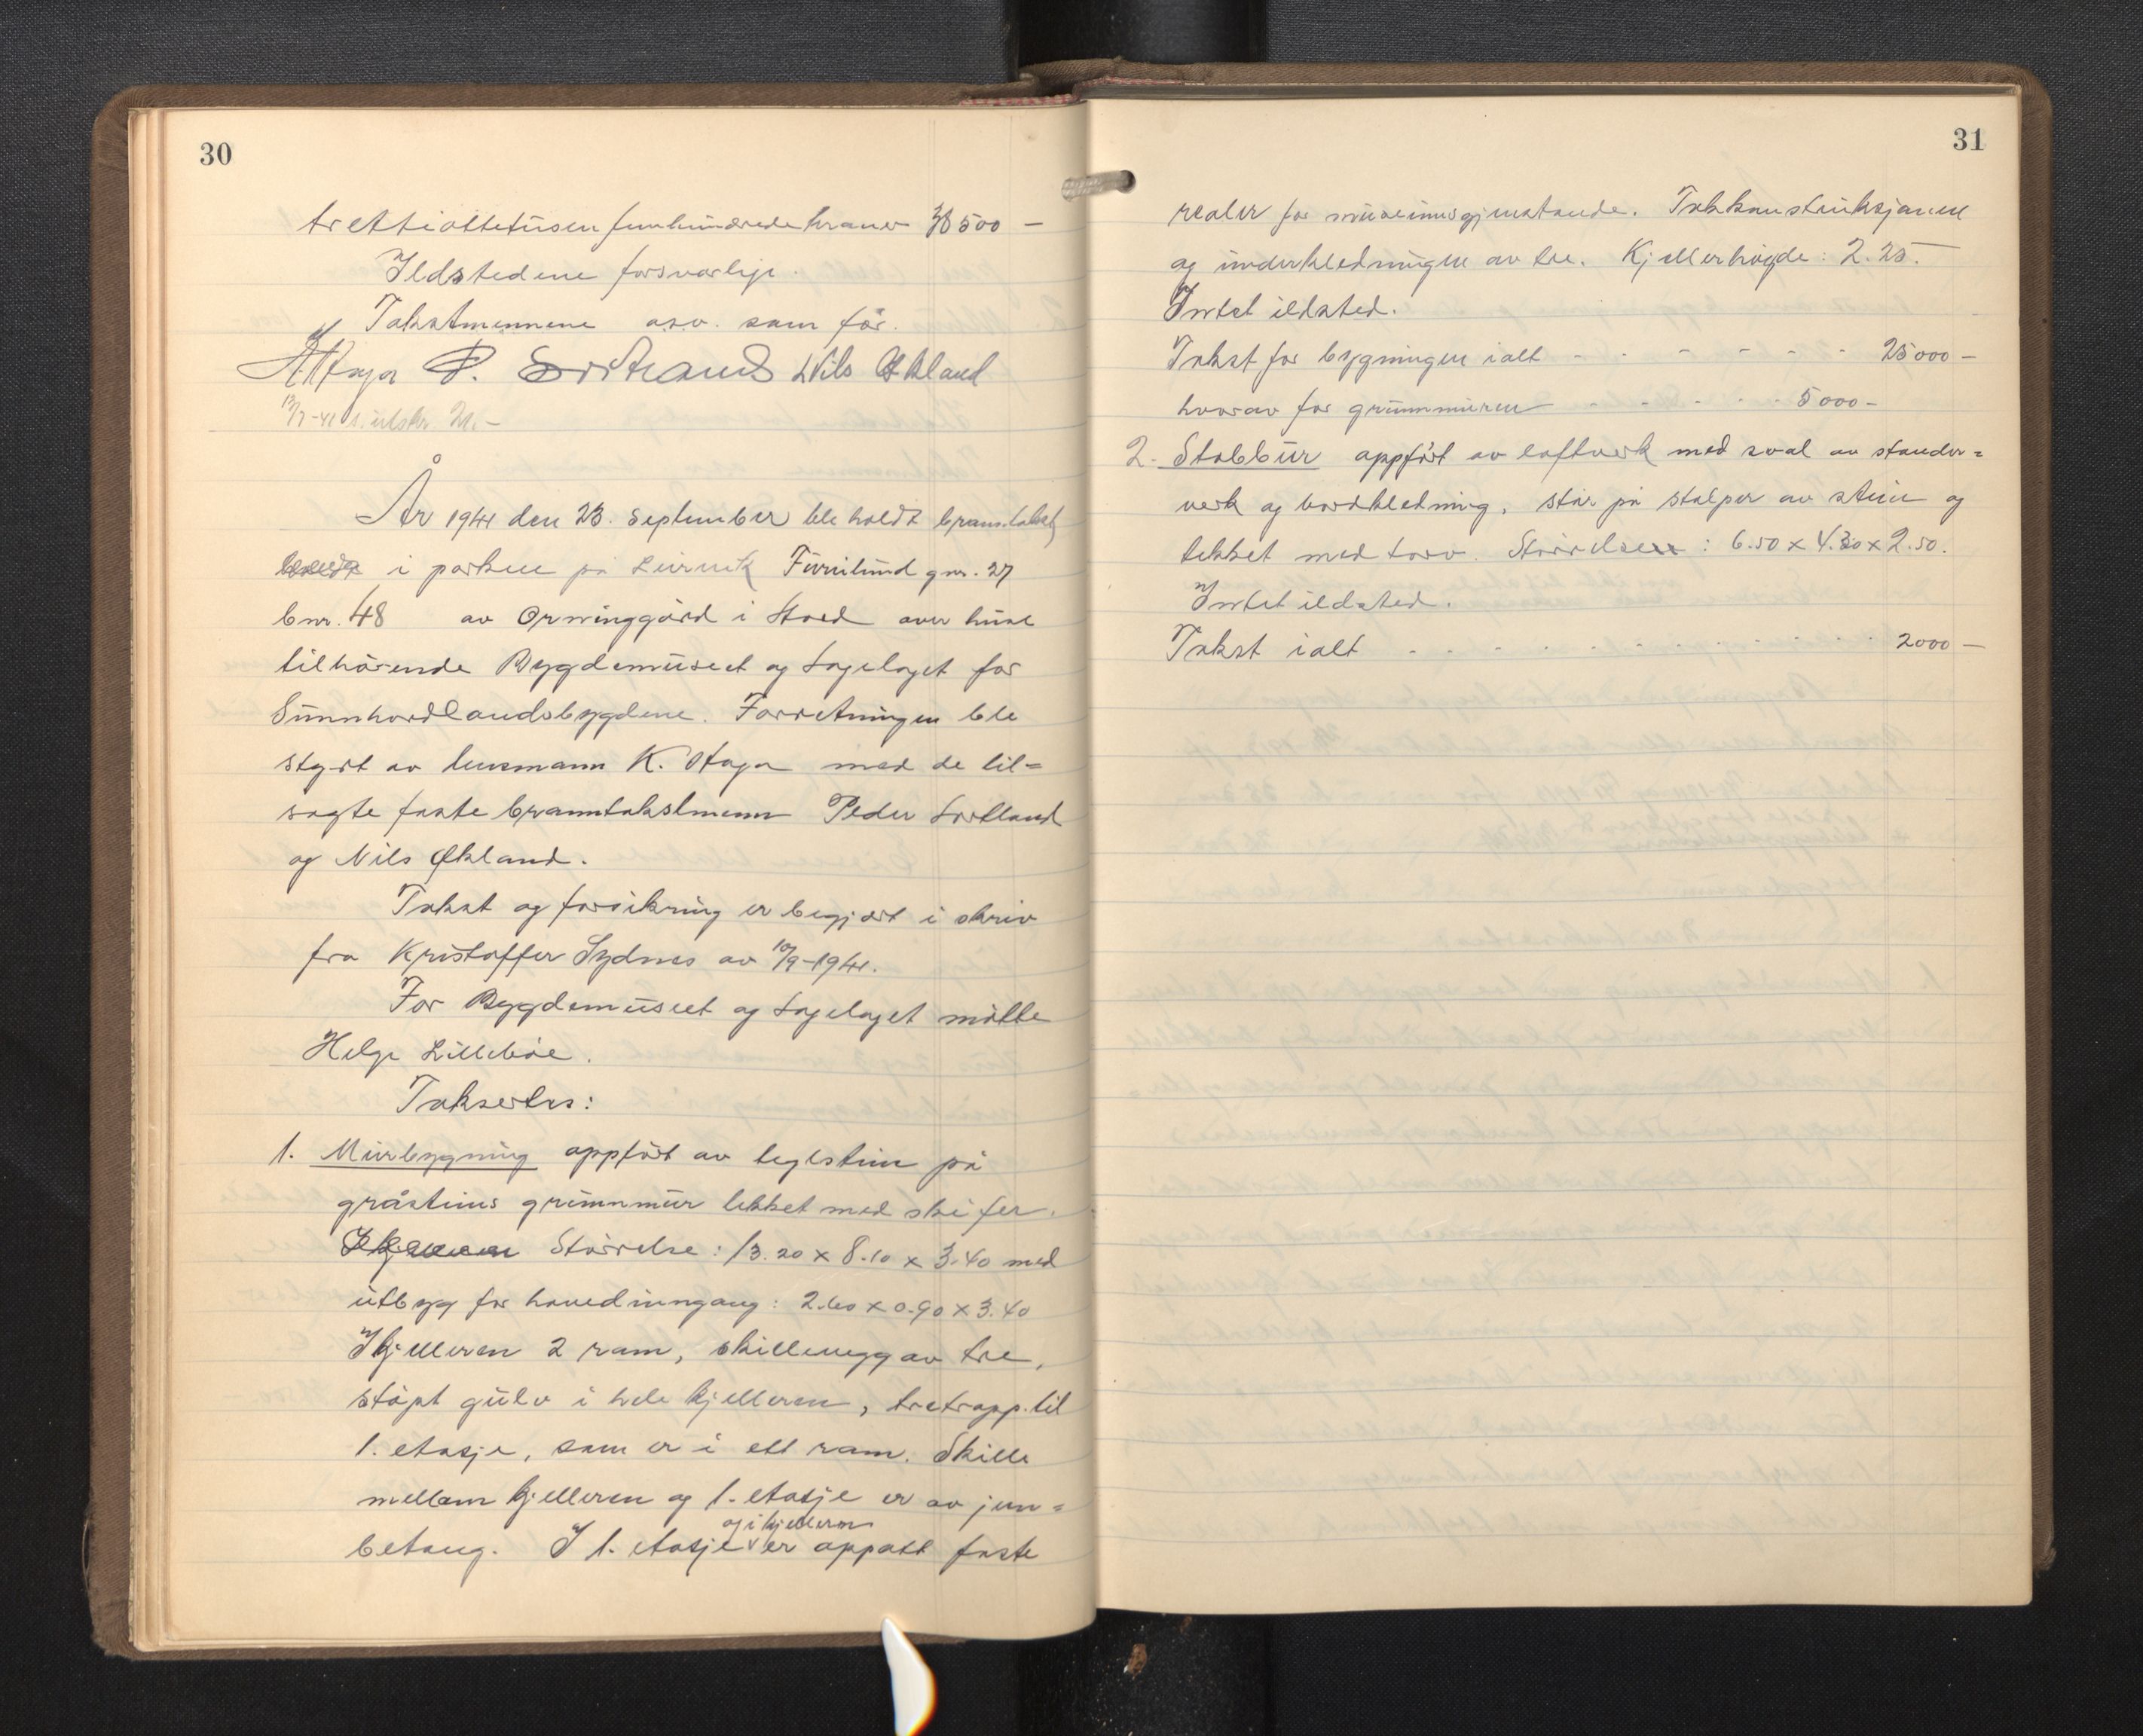 30
trettiåttetusenfemhundredekroner 38500 —
Ildstedene forsvarlige.
Takstmennene o.s.v. som før.
K Haga P. Sortland Nils Økland
13/7-41 1. utskr.
År 1941 den 23. september ble holdt branntakst
i parken på Leirvik Furulund gnr. 27
bnr. 48 av Orninggård i Stord over huse
tilhørende Bygdemuseet og Sogelaget for
Sunnhordlandsbygdene. Forretningen ble
styrt av lensmann K. Haga med de til=
sagte faste branntakstmenn Peder Sortland
og Nils Økland.
Takst og forsikring er begjært i skriv
fra Kristoffer Sydnes av 10/9-1941.
For Bygdemuseet og Sogelaget møtte
Helge Lillebøe.
Taksertes:
1. Murbygning oppført av teglstein på
gråsteins grunnmur tekket med skifer.
Størrelse: 13.20 x 8.10 x 3.40 med
utbygg for hovedinngang: 2.60 x 0.90 x 3.40
I kjelleren 2 rom, skillevegg av tre,
støpt gulv i hele kjelleren, tretrapp til
1. etasje, som er i ett rom. Skille
mellom kjelleren og 1. etasje er av jern=
betong. I 1. etasje og i kjelleren er oppsatt faste
31
reoler for museumsgjenstande. Takkonstruksjonen
og underkledningen av tre. Kjellerhøgde: 2.25.
Intet ildsted.
Takst for bygningen ialt - - - - - - 25000 —
hvorav for grunnmuren - - - - - 5000 -
2. Stabbur oppført av laftverk med sval av stender=
verk og bordkledning, står på stolper av stein og
tekket med torv. Størrelse: 6.50 x 4.30 x 2.50.
Intet ildsted.
Takst ialt - - - - - - - - - - - 2000 —